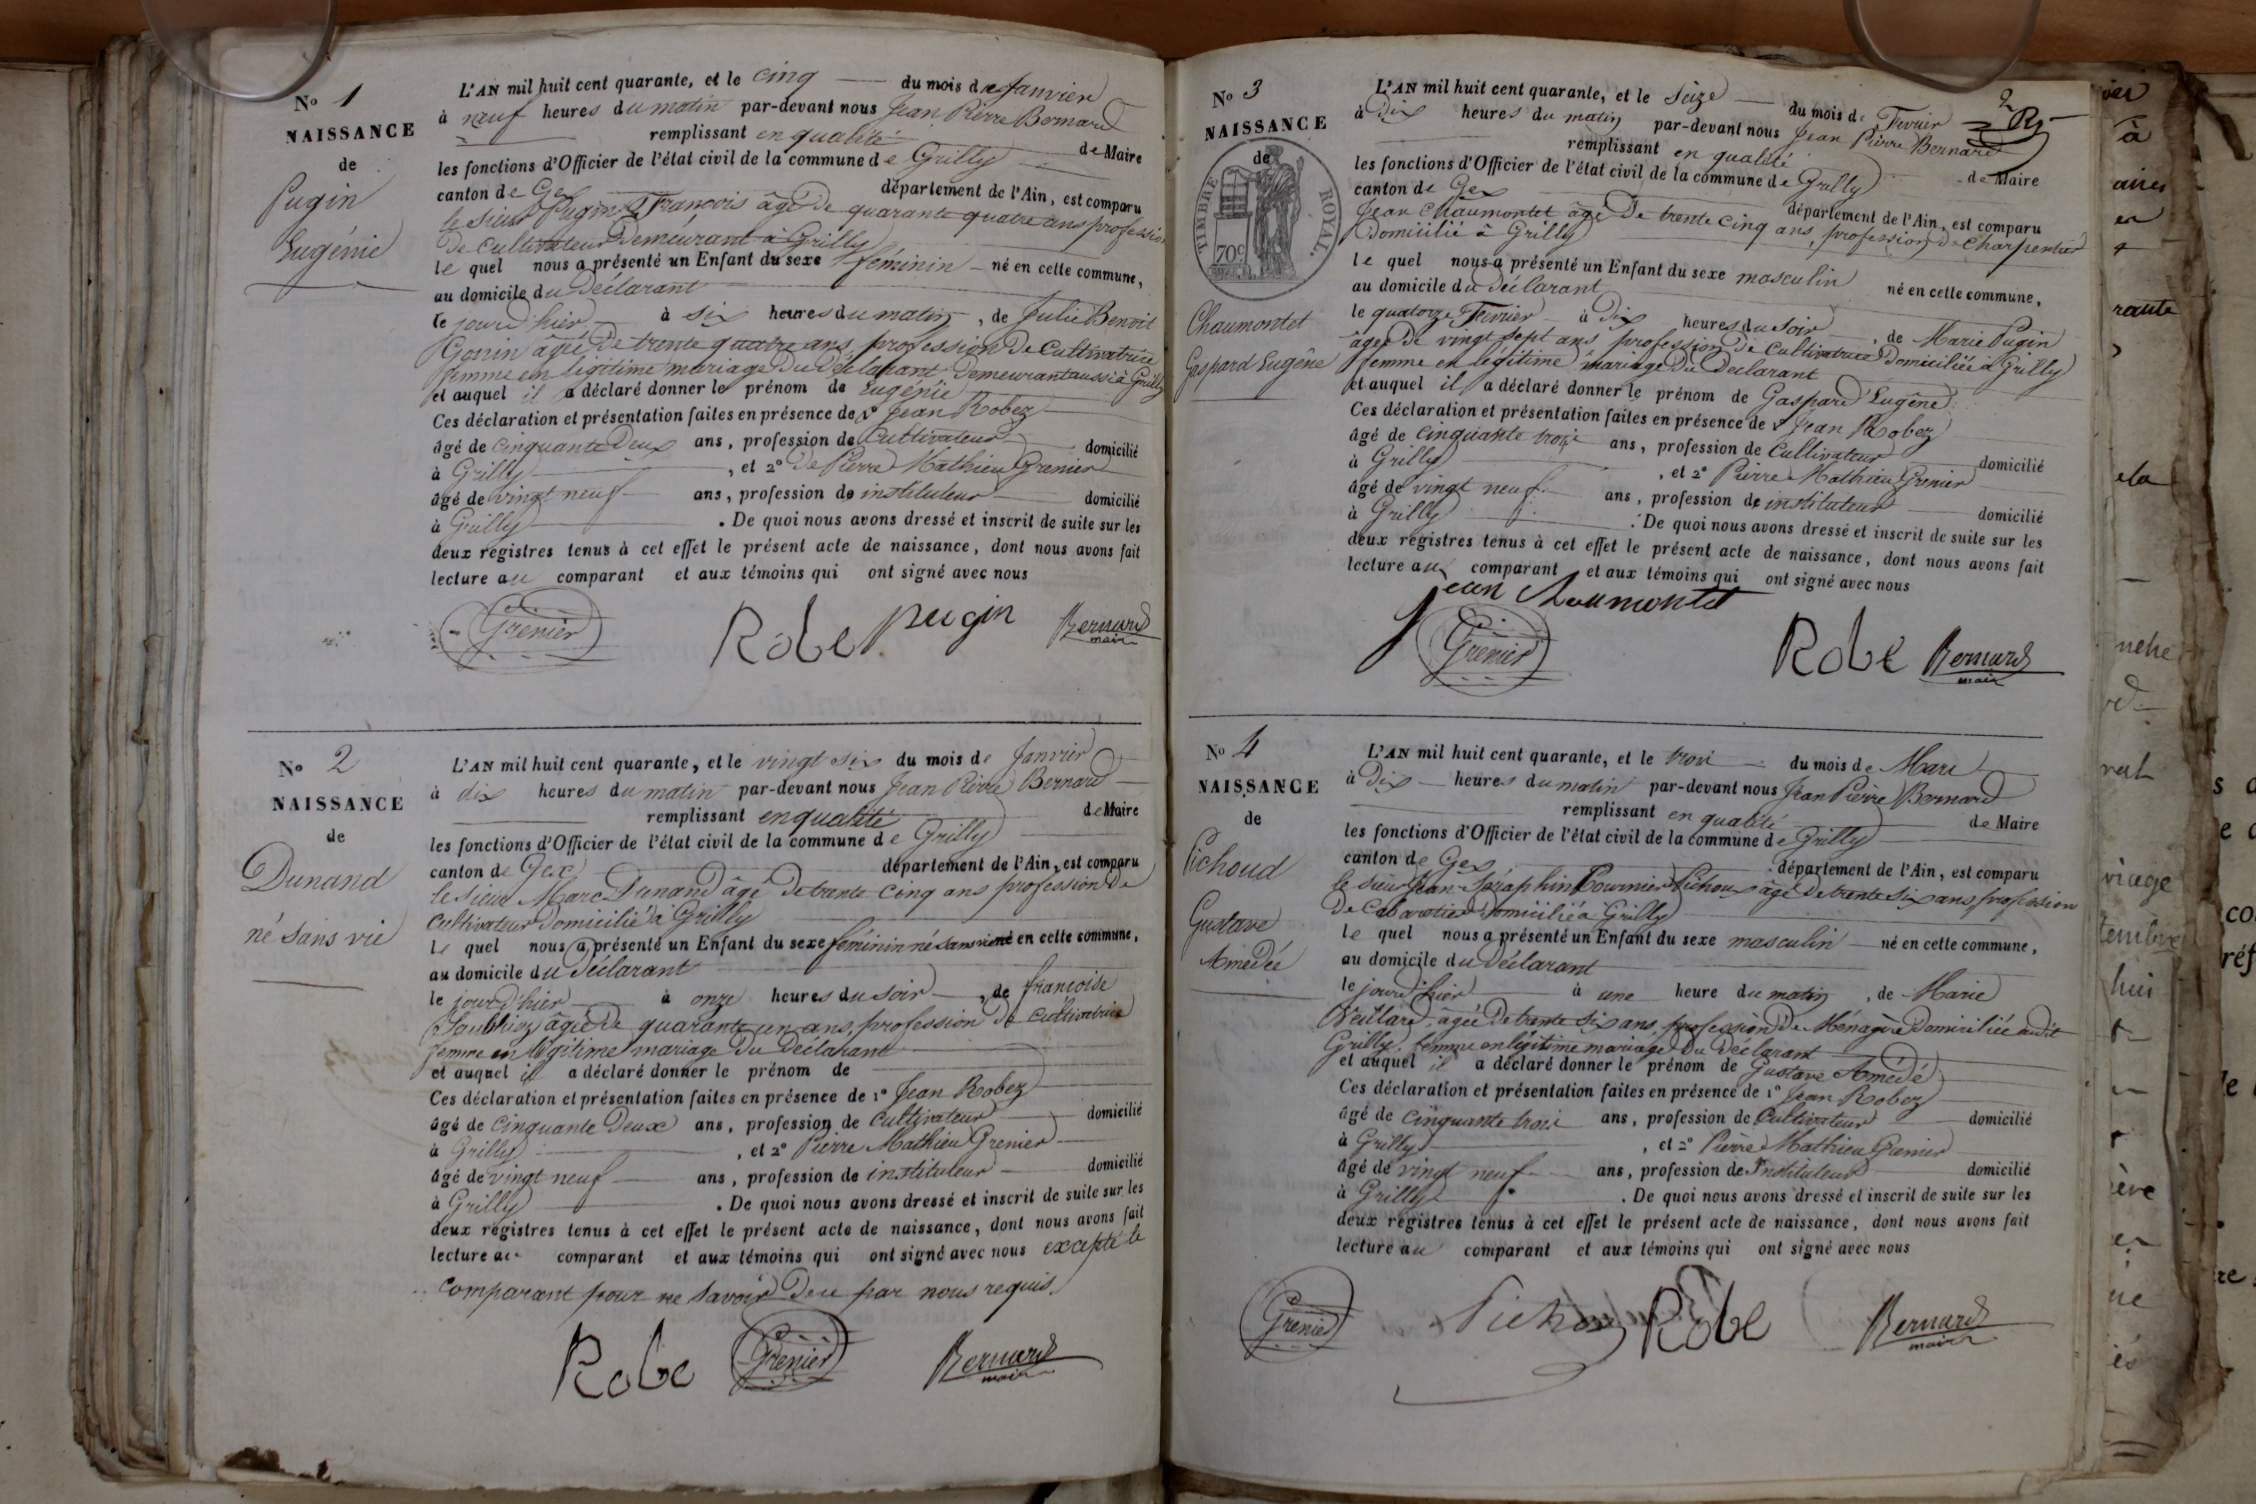 N.º 1
NAISSANCE
de
Pugin
Eugénie
L'AN mil huit cent quarante, et le cinq du mois de Janvier
à neuf heures du matin par-devant nous Jean Pierre Bernard
remplissant en qualité de Maire
les fonctions d'Officier de l'état civil de la commune de Grilly
canton de Gex département de l'Ain, est comparu
le sieur Pugin François âgé de quarante quatre ans profession
de cultivateur Demeurant à Grilly
le quel nous a présenté un Enfant du sexe féminin né en cette commune,
au domicile du Déclarant
le jour d'hier à six heures du matin, de Julie Benoit
Gonin âgée de trente quatre ans, profession de Cultivatrice
femme en légitime mariage du Déclarant Demeurant aussi à Grilly
et auquel il a déclaré donner le prénom de Eugénie
Ces déclaration et présentation faites en présence de 1º Jean Robez
âgé de cinquante Deux ans, profession de Cultivateur domicilié
à Grilly, et 2º de Pierre Mathieu Grenier
âgé de vingt neuf ans, profession de instituteur domicilié
à Grilly. De quoi nous avons dressé et inscrit de suite sur les
deux registres tenus à cet effet le présent acte de naissance, dont nous avons fait
lecture au comparant et aux témoins qui ont signé avec nous
Grenier Robe Pugin Bernard
maire
N.º 2
NAISSANCE
de
Dunand
né sans vie
L'AN mil huit cent quarante, et le vingt six du mois de Janvier
à dix heures du matin par-devant nous Jean Pierre Bernard
remplissant en qualité de Maire
les fonctions d'Officier de l'état civil de la commune de Grilly
canton de Gex département de l'Ain, est comparu
le sieur Marc Dunand âgé de trente cinq ans profession de
cultivateur Domicilié à Grilly
le quel nous a présenté un Enfant du sexe féminin né sans vie né en cette commune,
au domicile du Déclarant
le jour d'hier à onze heures du soir, de françoise
âgée de quarante un ans, profession de Cultivatrice
femme en légitime mariage du Déclarant
et auquel il a déclaré donner le prénom de
Ces déclaration et présentation faites en présence de 1º Jean Robez
âgé de cinquante Deux ans, profession de cultivateur domicilié
à Grilly, et 2º Pierre Mathieu Grenier
âgé de vingt neuf ans, profession de instituteur domicilié
à Grilly. De quoi nous avons dressé et inscrit de suite sur les
deux registres tenus à cet effet le présent acte de naissance, dont nous avons fait
lecture au comparant et aux témoins qui ont signé avec nous excepté le
comparant pour ne savoir De ce par nous requis.
Robe Grenier Bernard
maire
2
N.º 3
NAISSANCE
de
TIMBRE ROYAL.
70c
Chaumontet
Gaspard Eugêne
L'AN mil huit cent quarante, et le Seize du mois de Fevrier
à Dix heures du matin par-devant nous Jean Pierre Bernard
remplissant en qualité de Maire
les fonctions d'Officier de l'état civil de la commune de Grilly
canton de Gex département de l'Ain, est comparu
Jean Chaumontet âgé De trente cinq ans, profession de Charpentier
Domicilié à Grilly
le quel nous a présenté un Enfant du sexe masculin né en cette commune,
au domicile du Déclarant
le quatorze Fevrier à Dix heures du Soir, de Marie Pugin
âgée de vingt sept ans profession de Cultivatrice Domiciliée à Grilly
femme en légitime mariage du Déclarant
et auquel il a déclaré donner le prénom de Gaspard Eugêne
Ces déclaration et présentation faites en présence de 1º Jean Robez
âgé de cinquante trois ans, profession de Cultivateur domicilié
à Grilly, et 2º Pierre Mathieu Grenier
âgé de vingt neuf ans, profession de instituteur domicilié
à Grilly. De quoi nous avons dressé et inscrit de suite sur les
deux registres tenus à cet effet le présent acte de naissance, dont nous avons fait
lecture au comparant et aux témoins qui ont signé avec nous
jean Chaumontet
Grenier Robe Bernard
maire
N.º 4
NAISSANCE
de
Pichoud
Gustave
Amedée
L'AN mil huit cent quarante, et le trois du mois de Mars
à Dix heures du matin par-devant nous Jean Pierre Bernard
remplissant en qualité de Maire
les fonctions d'Officier de l'état civil de la commune de Grilly
canton de Gex département de l'Ain, est comparu
le sieur Jean Séraphin Fournier Pichoud âgé de trente six ans profession
De Cabaretier Domicilié à Grilly
le quel nous a présenté un Enfant du sexe masculin né en cette commune,
au domicile du Déclarant
le jour d'hier à une heure du matin, de Marie
Veillard, âgée de trente six ans profession de Ménagère Domiciliée audit
Grilly, femme en légitime mariage du Déclarant
et auquel il a déclaré donner le prénom de Gustave Amédé
Ces déclaration et présentation faites en présence de 1º Jean Robez
âgé de cinquante trois ans, profession de Cultivateur domicilié
à Grilly, et 2º Pierre Mathieu Grenier
âgé de vingt neuf ans, profession de Instituteur domicilié
à Grilly. De quoi nous avons dressé et inscrit de suite sur les
deux registres tenus à cet effet le présent acte de naissance, dont nous avons fait
lecture au comparant et aux témoins qui ont signé avec nous
Grenier Robe Bernard
maire